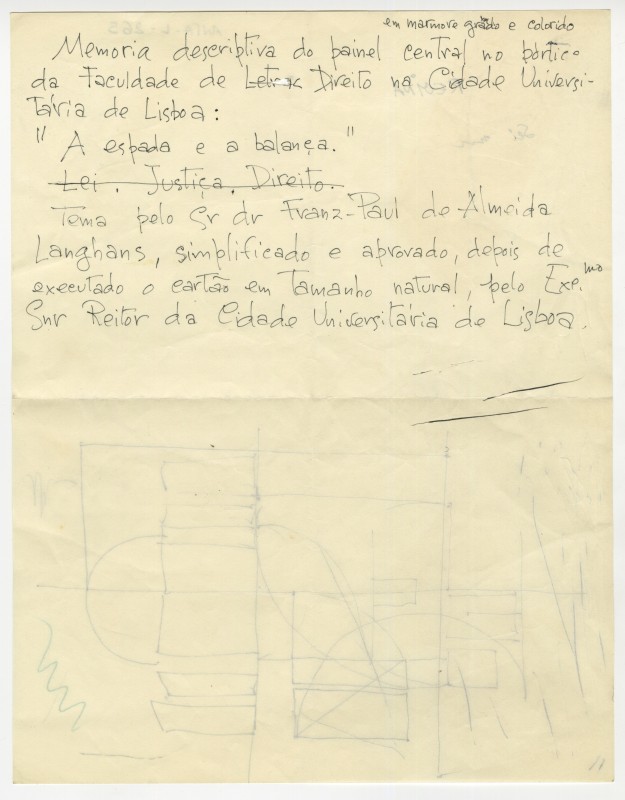 em marmore gravado e colorido
Memoria descriptiva do painel central no pórtico
da Faculdade de Letras Direito na Cidade Universi-
tária de Lisboa:
"A espada e a balança."
Lei. Justiça. Direito.
Tema pelo Sr dr Franz-Paul de Almeida
Langhans, simplificado e aprovado, depois de
executado o cartão em tamanho natural, pelo Exe.mo
Snr Reitor da Cidade Universitária de Lisboa.